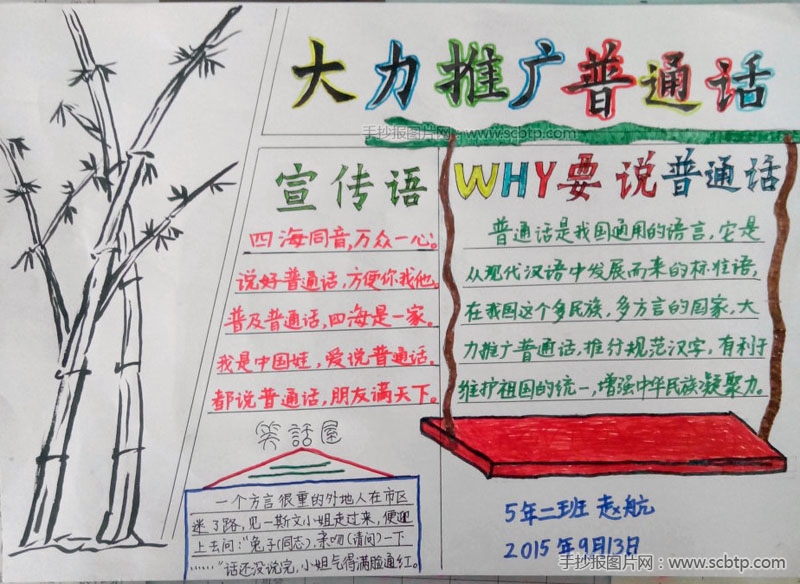 大力推广普通话
手抄报图片网：www.scbtp.com
宣传语
四海同音,万众一心。
说好普通话,方便你我他。
普及普通话,四海是一家。
我是中国娃,爱说普通话。
都说普通话,朋友满天下。
WHY要说普通话
普通话是我国通用的语言,它是
从现代汉语中发展而来的标准语,
在我国这个多民族,多方言的国家,大
力推广普通话,推行规范汉字,有利于
维护祖国的统一,增强中华民族凝聚力。
笑話屋
一个方言很重的外地人在市区
迷了路,见一斯文小姐走过来,便迎
上去问:"兔子(同志),亲吻(请问)一下
……"话还没说完,小姐气得满脸通红。
5年二班 赵航
2015年9月13日
手抄报图片网：www.scbtp.com